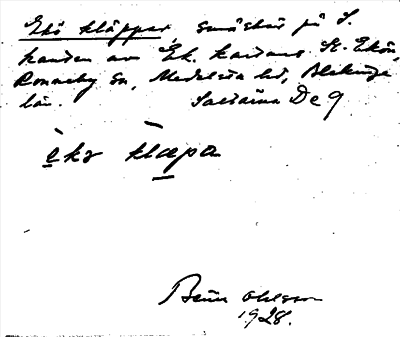 Ekö kläppar, småskär på S.
kanten av Ek. kartans St. Ekön,
Ronneby sn, Medelsta hd, Blekinge
län. Saxnäs De 9
èkɷ klæpa
Bror Ohlsson
1928.